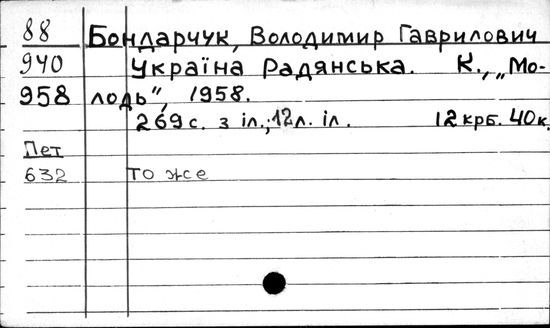 88 Бондарчук, Володимир Гаврилович
940 Україна Радянська. К., „Мо-
958 лодь”, 1958.
269 с. з іл.; 12 л. іл. 12 крб. 40 к.
Пет
632 то же